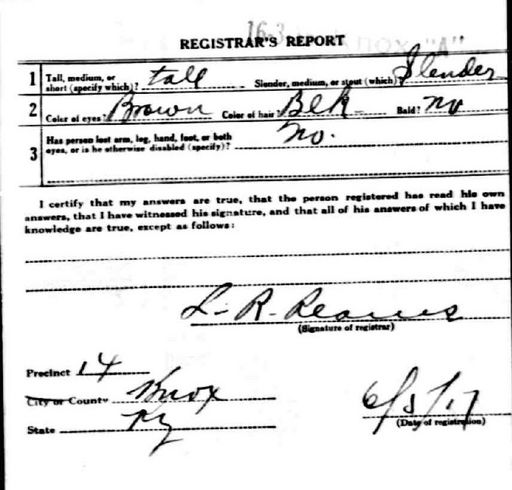 16-3
REGISTRAR'S REPORT
1 Tall, medium, or short (specify which)? tall Slender, medium, or stout (which) Slender
2 Color of eyes? Brown Color of hair? Blk Bald? no
3 Has person lost arm, leg, hand, foot, or both eyes, or is he otherwise disabled (specify)? No.
I certify that my answers are true, that the person registered has read his own
answers, that I have witnessed his signature, and that all of his answers of which I have
knowledge are true, except as follows:
L. R.
(Signature of registrar)
Precinct 14
City or County Knox
State Ky
6/5/17
(Date of registration)